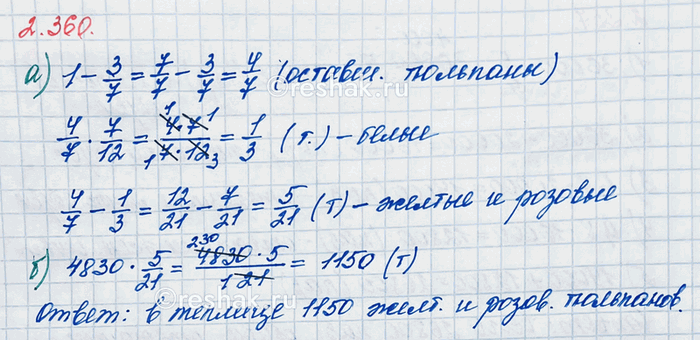 2.360.
а) 1 - 3/7 = 7/7 - 3/7 = 4/7 (оставш. тюльпаны)
©reshak.ru
4/7 · 7/12 = 4·7/7·12 = 1/3 (т.) - белые
4/7 - 1/3 = 12/21 - 7/21 = 5/21 (т) - желтые и розовые
б) 4830 · 5/21 = 4830·5/21 = 1150 (т)
©reshak.ru
Ответ: в теплице 1150 желт. и розов. тюльпанов.